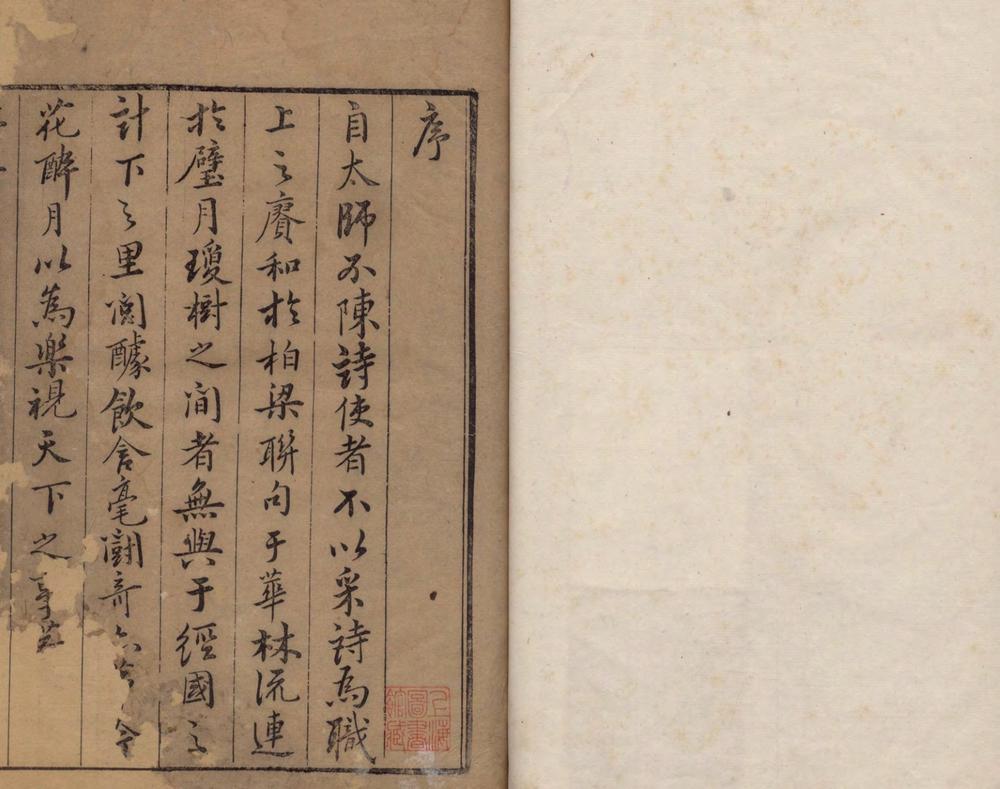 序
自太師不陳詩使者不以采詩為職
上之賡和於柏梁聯句于華林流連
於璧月瓊樹之間者無與于經國之
計下之里閭醵飲含毫鬬奇
花醉月以為樂視天下之事
上海圖書館藏